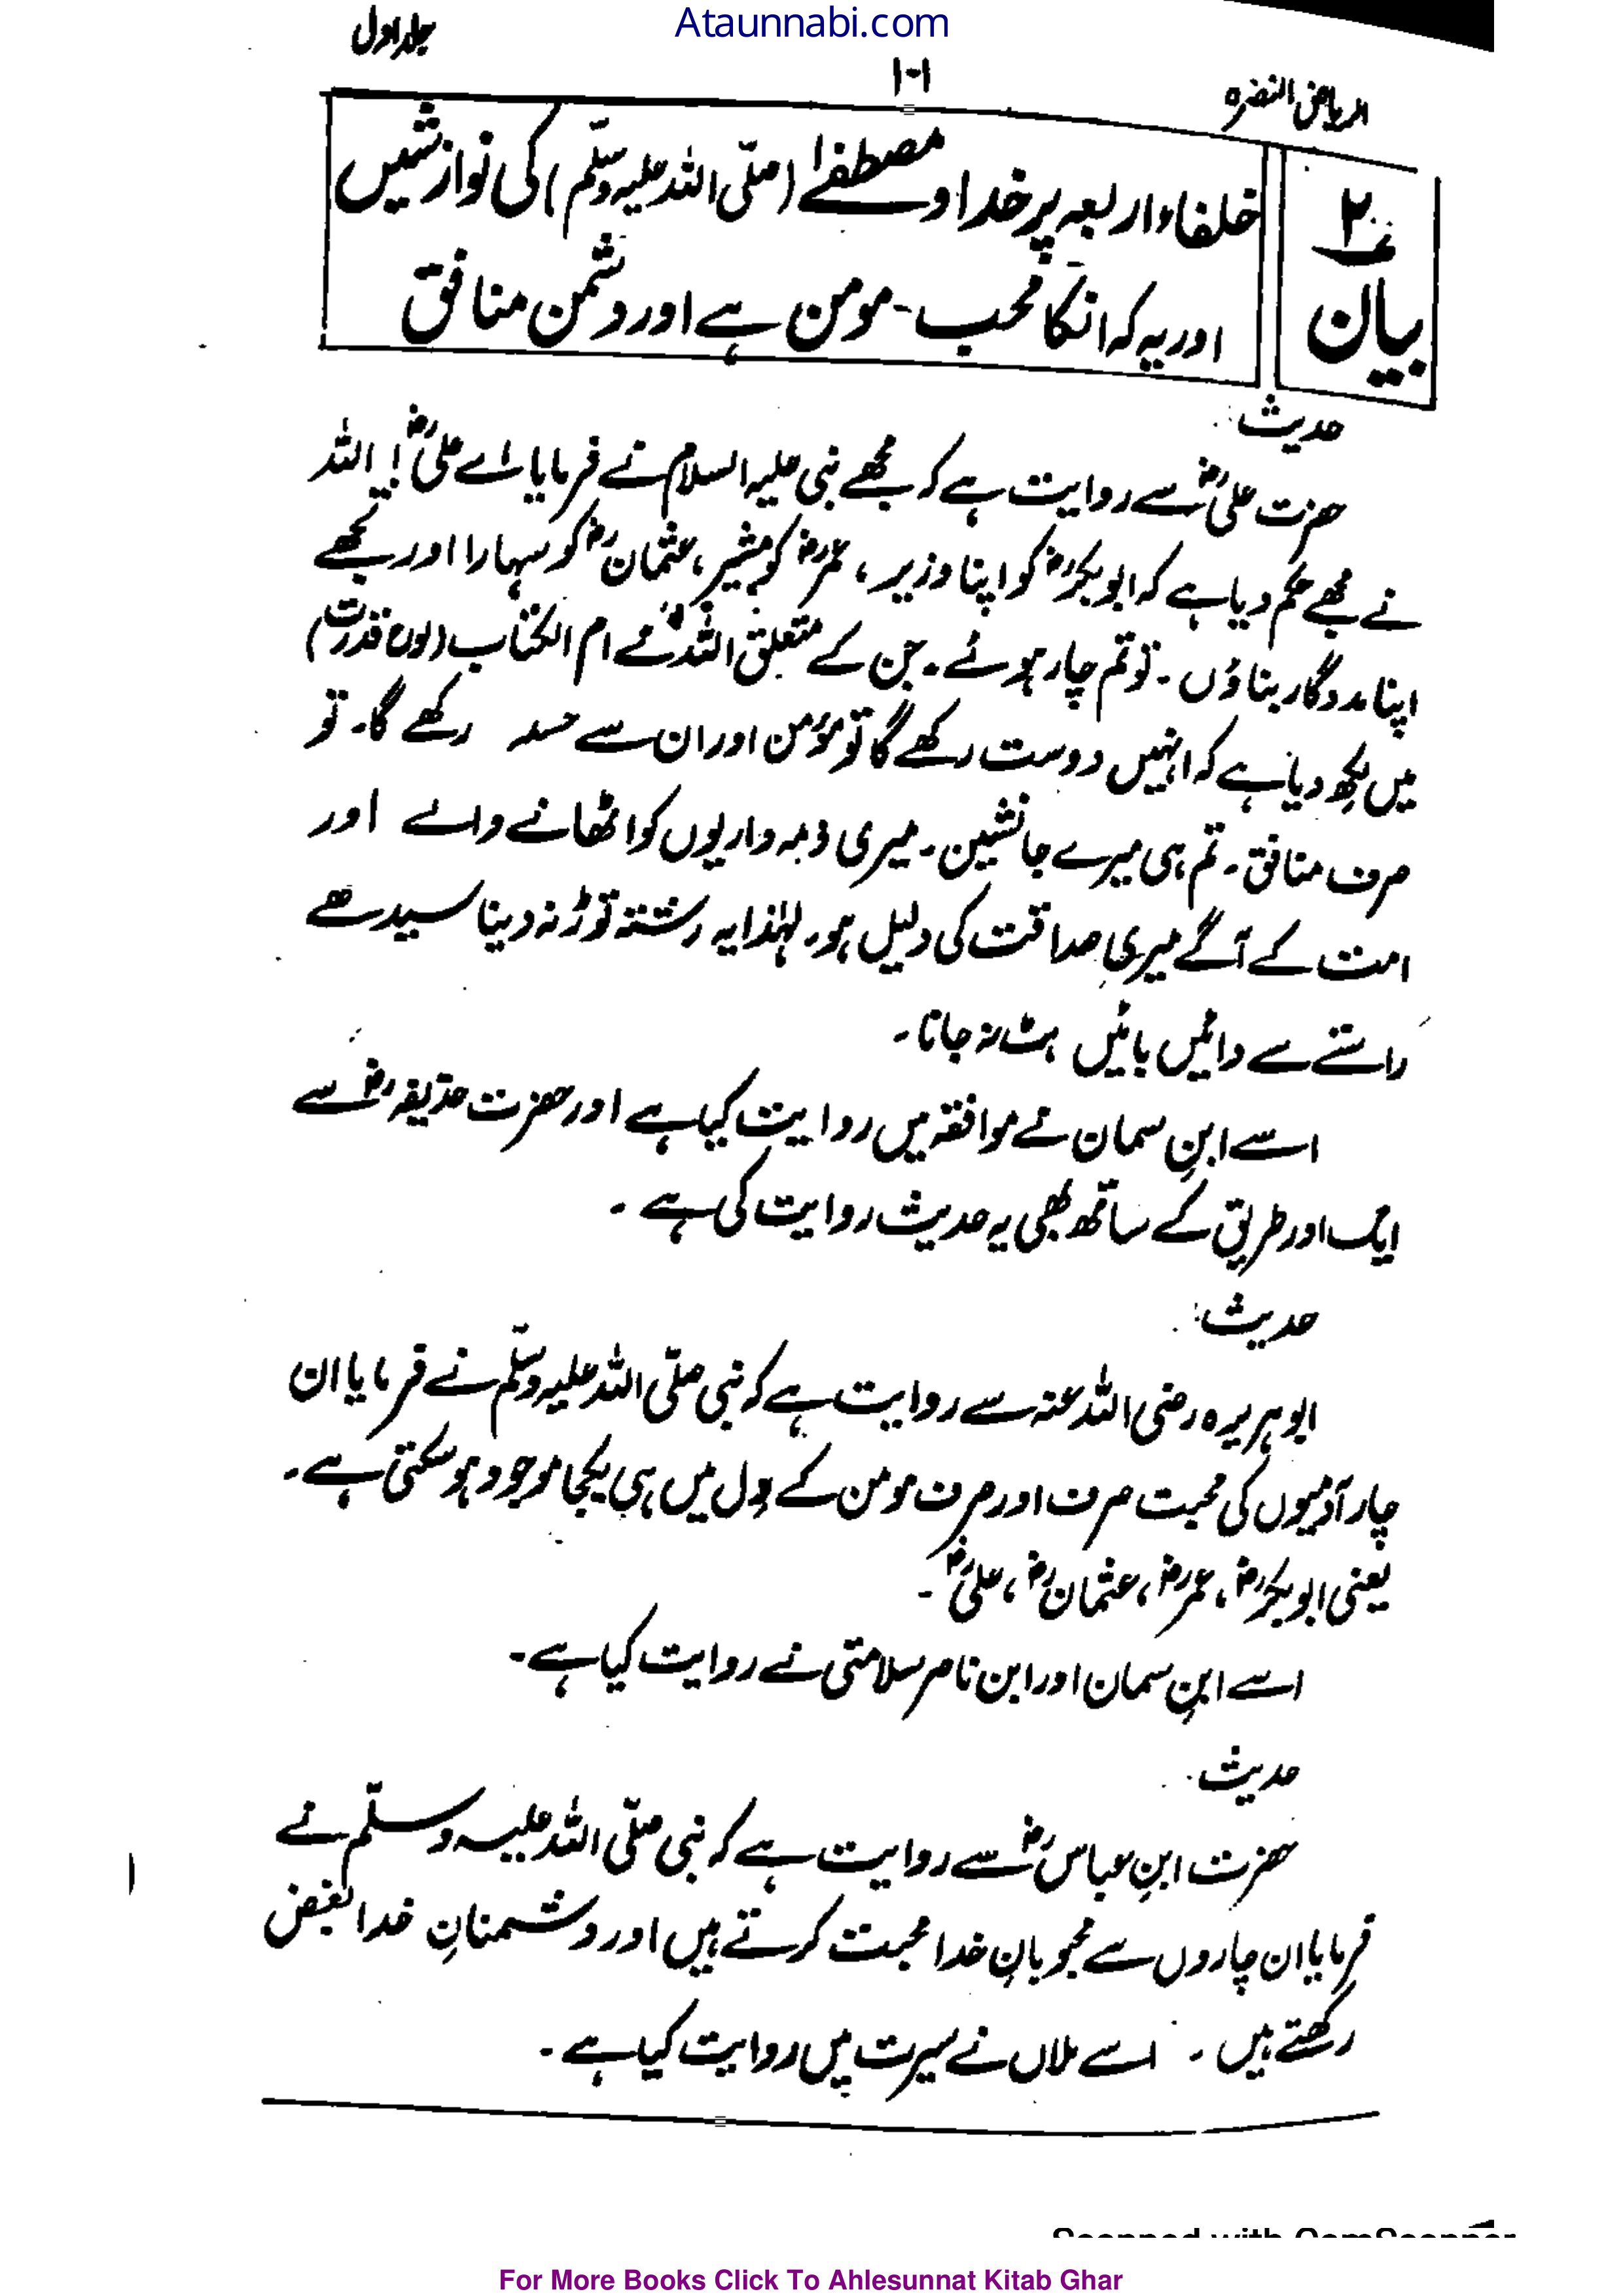 Ataunnabi.com
الریاض النضرہ
۱۰۱
جلد اول
بیان ۲
خلفاءِ اربعہ پر خدا و مصطفےٰ (صلّی اللہ علیہ وسلّم) کی نوازشیں
اور یہ کہ انکا محب - مومن ہے اور دشمن منافق
حدیث:
حضرت علیؓ سے روایت ہے کہ مجھے نبی علیہ السلام نے فرمایا اے علیؓ! اللہ
نے مجھے حکم دیا ہے کہ ابوبکرؓ کو اپنا وزیر، عمرؓ کو مشیر، عثمانؓ کو سہارا اور تجھے
اپنا مددگار بناؤں۔ تو تم چار ہوئے۔ جن کے متعلق اللہ نے ام الکتاب (لوح قدرت)
میں لکھ دیا ہے کہ انہیں دوست رکھے گا تو مؤمن اور ان سے حسد رکھے گا۔ تو
صرف منافق۔ تم ہی میرے جانشین۔ میری ذمہ داریوں کو اٹھانے والے اور
امت کے آگے میری صداقت کی دلیل ہو۔ لہٰذا یہ رشتہ توڑ نہ دینا سیدھے
راستے سے دائیں بائیں ہٹ نہ جانا۔
اسے ابنِ سمان نے موافقہ میں روایت کیا ہے اور حضرت حذیفہؓ سے
ایک اور طریق کے ساتھ بھی یہ حدیث روایت کی ہے۔
حدیث:
ابو ہریرہ رضی اللہ عنہ سے روایت ہے کہ نبی صلّی اللہ علیہ وسلّم نے فرمایا ان
چار آدمیوں کی محبت صرف اور صرف مومن کے دِل میں ہی یکجا موجود ہو سکتی ہے۔
یعنی ابوبکرؓ، عمرؓ، عثمانؓ، علیؓ۔
اسے ابنِ سمان اور ابن ناصر سلامتی نے روایت کیا ہے۔
حدیث:
حضرت ابنِ عباسؓ سے روایت ہے کہ نبی صلّی اللہ علیہ وسلّم نے
فرمایا ان چاروں سے محبوبانِ خدا محبت کرتے ہیں اور دشمنانِ خدا بغض
رکھتے ہیں۔ اسے ملاں نے سیرت میں روایت کیا ہے۔
Scanned with CamScanner
For More Books Click To Ahlesunnat Kitab Ghar